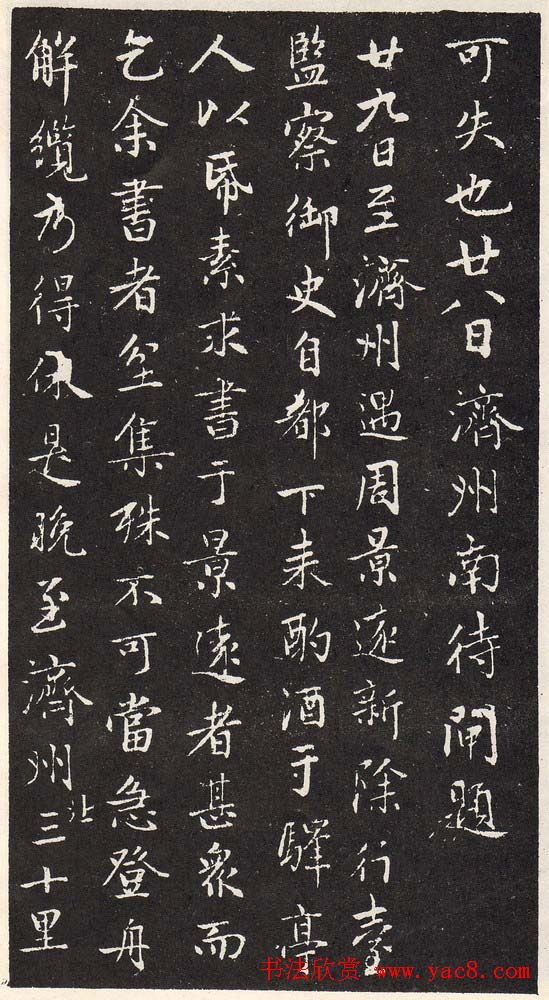 可失也廿八日濟州南待閘題
廿九日至濟州遇周景遠新除行臺
監察御史自都下來酌酒于驛亭
人以帋素求書于景遠者甚衆而
乞余書者坌集殊不可當急登舟
解纜乃得休是晚至濟州北三十里
书法欣赏 www.yac8.com